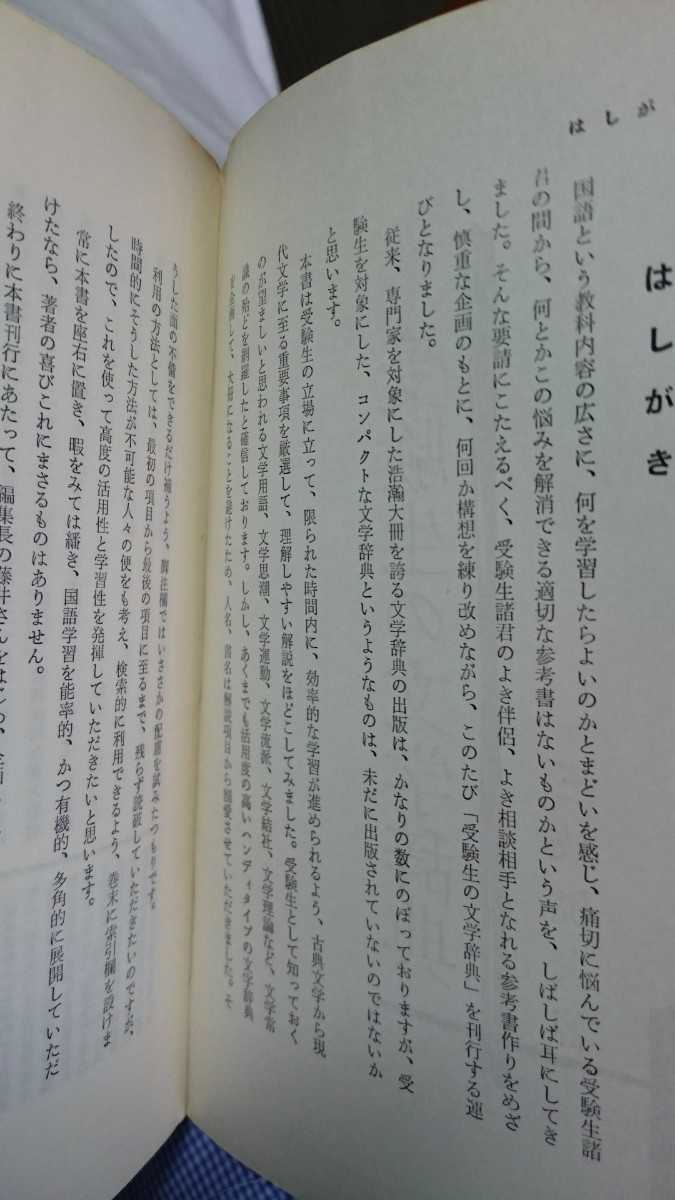 はしが
はしがき
国語という教科内容の広さに、何を学習したらよいのかとまどいを感じ、痛切に悩んでいる受験生諸
君の間から、何とかこの悩みを解消できる適切な参考書はないものかという声を、しばしば耳にしてき
ました。そんな要請にこたえるべく、受験生諸君のよき伴侶、よき相談相手となれる参考書作りをめざ
し、慎重な企画のもとに、何回か構想を練り改めながら、このたび「受験生の文学辞典」を刊行する運
びとなりました。
従来、専門家を対象にした浩瀚大冊を誇る文学辞典の出版は、かなりの数にのぼっておりますが、受
験生を対象にした、コンパクトな文学辞典というようなものは、未だに出版されていないのではないか
と思います。
本書は受験生の立場に立って、限られた時間内に、効率的な学習が進められるよう、古典文学から現
代文学に至る重要事項を厳選して、理解しやすい解説をほどこしてみました。受験生として知っておく
のが望ましいと思われる文学用語、文学思潮、文学運動、文学流派、文学結社、文学理論など、文学常
識の殆どを網羅したと確信しております。しかし、あくまでも活用度の高いハンディタイプの文学辞典
を企画して、大冊になることを避けたため、人名、書名は解説項目から割愛させていただきました。そ
うした面の不備をできるだけ補うよう、脚注欄ではいささかの配慮を試みたつもりです。
利用の方法としては、最初の項目から最後の項目に至るまで、残らず読破していただきたいのですが、
時間的にそうした方法が不可能な人々の便をも考え、検索的に利用できるよう、巻末に索引欄を設けま
したので、これを使って高度の活用性と学習性を発揮していただきたいと思います。
常に本書を座右に置き、暇をみては繙き、国語学習を能率的、かつ有機的、多角的に展開していただ
けたなら、著者の喜びこれにまさるものはありません。
終わりに本書刊行にあたって、編集長の藤井さんをはじめ、